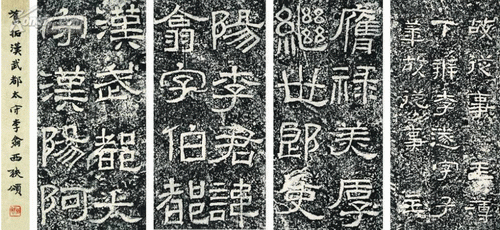 舊拓漢武都太守李翕西狹頌
漢武都太
守漢陽阿
陽李君諱
翕字伯都
膺祿美厚
繼世郎吏
故從事
下辨李字子
故從事